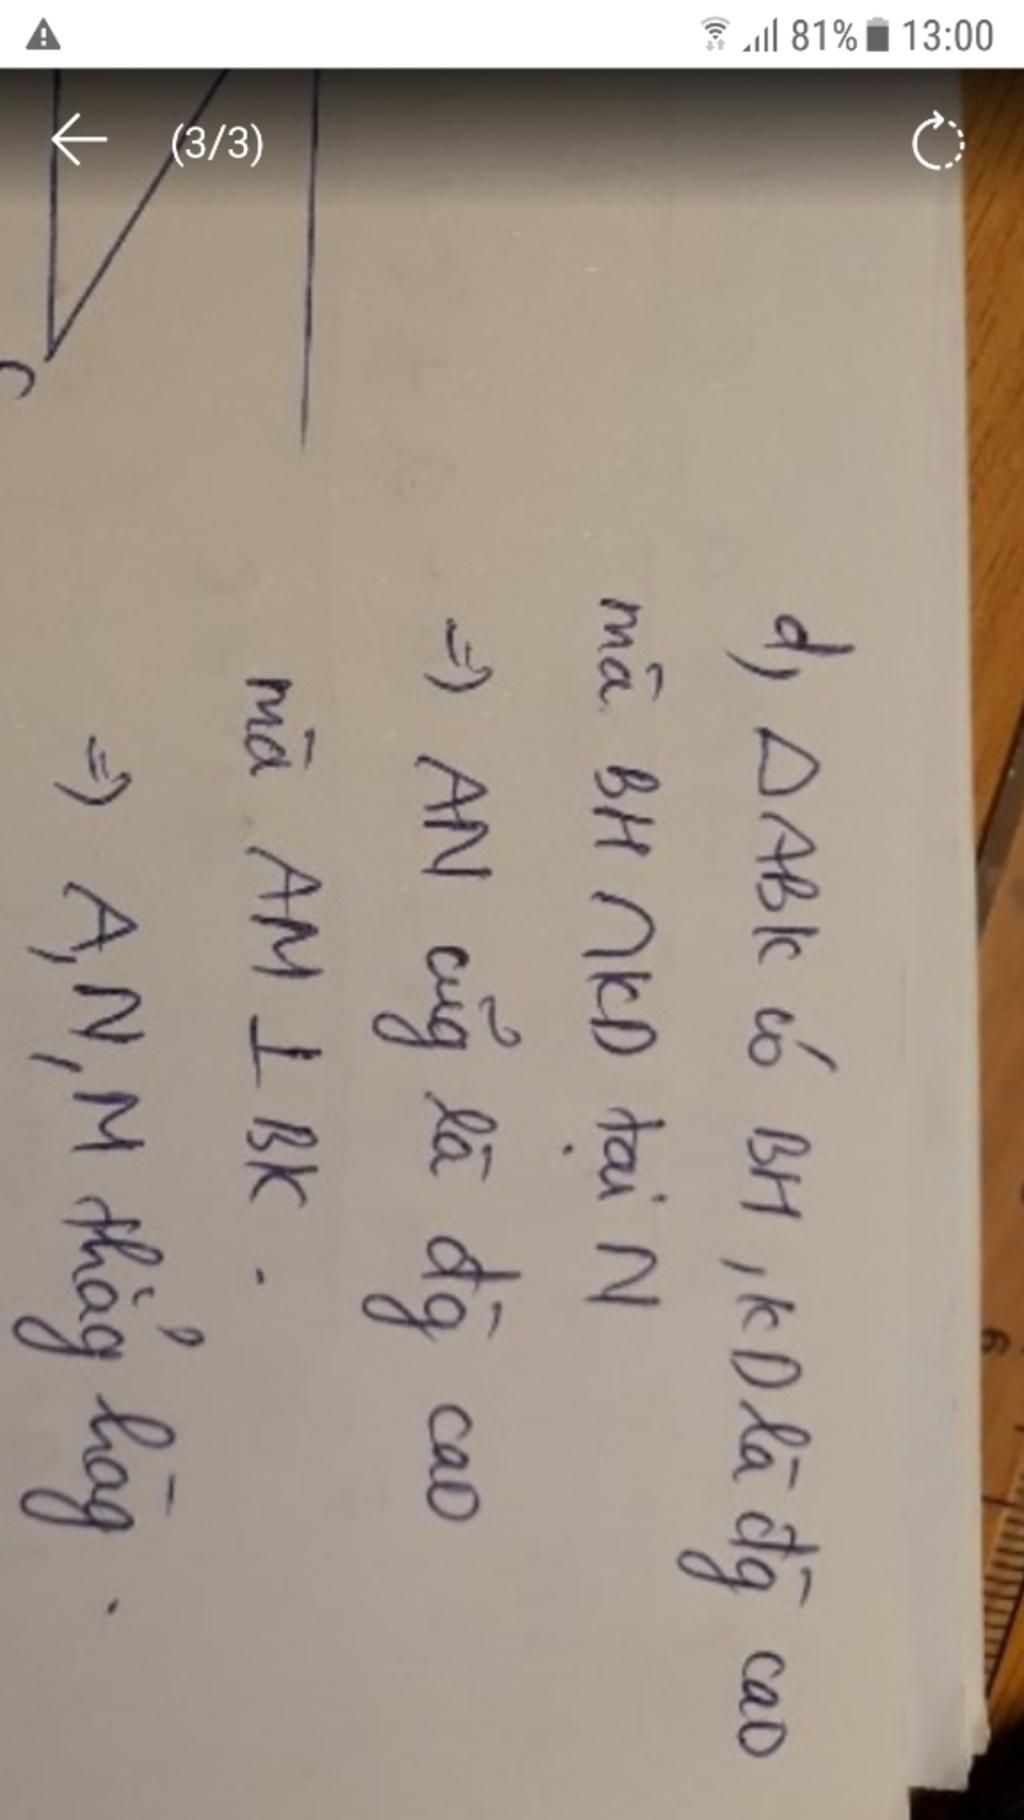 81% 13:00
(3/3)
C
d, Δ ABK có BH, KD là đg̀ cao
mà BH ∩ KD tại N
=) AN cũg là đg̀ cao
mà AM ⊥ BK.
=) A, N, M thẳg hàg.
6